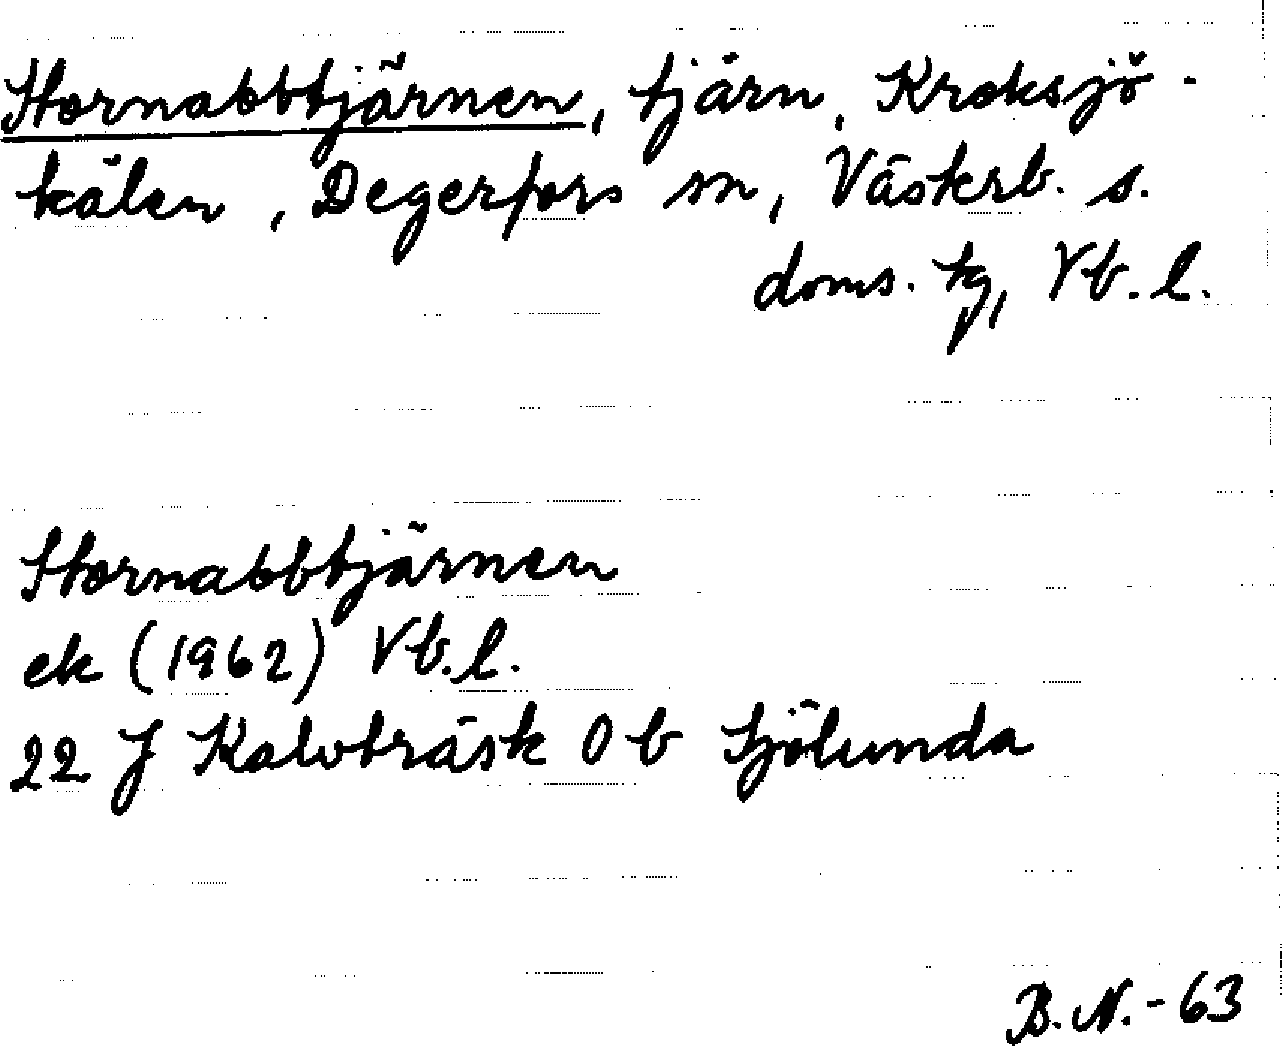 Stornabbtjärnen, tjärn, Kroksjö-
kälen, Degerfors sn, Västerb. s.
doms. tg, Vb. l.
Stornabbtjärnen
ek (1962) Vb. l.
22 J Kalvträsk 0 b Sjölunda
B. N. - 63